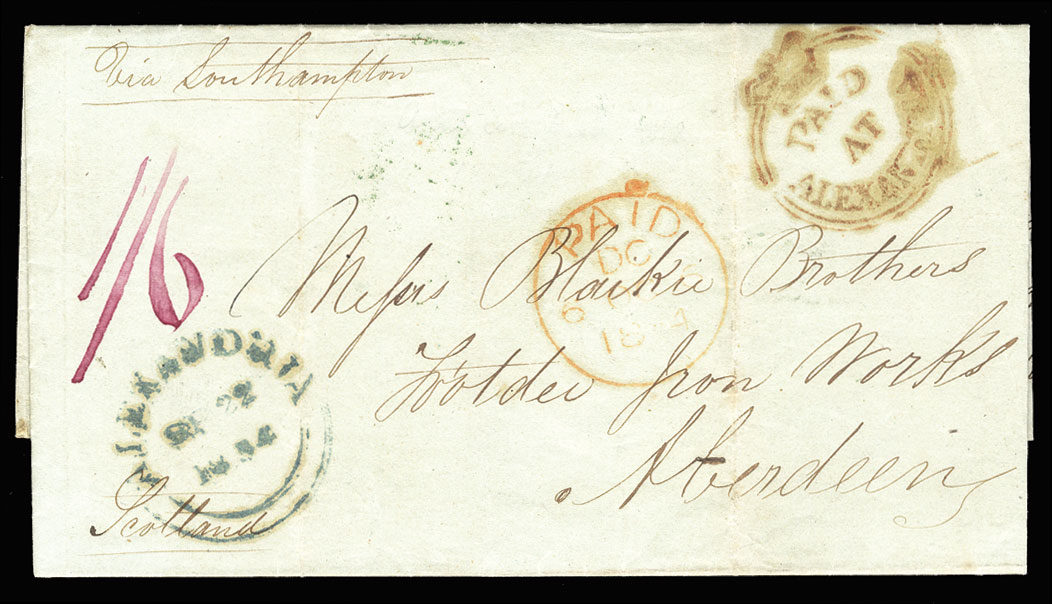 Via Southampton
PAID
AT
ALEXAN
1/6
PAID
DC
18
Messrs Blaikie Brothers
Footdee Iron Works
Aberdeen
ALEXANDRIA
22
Scotland